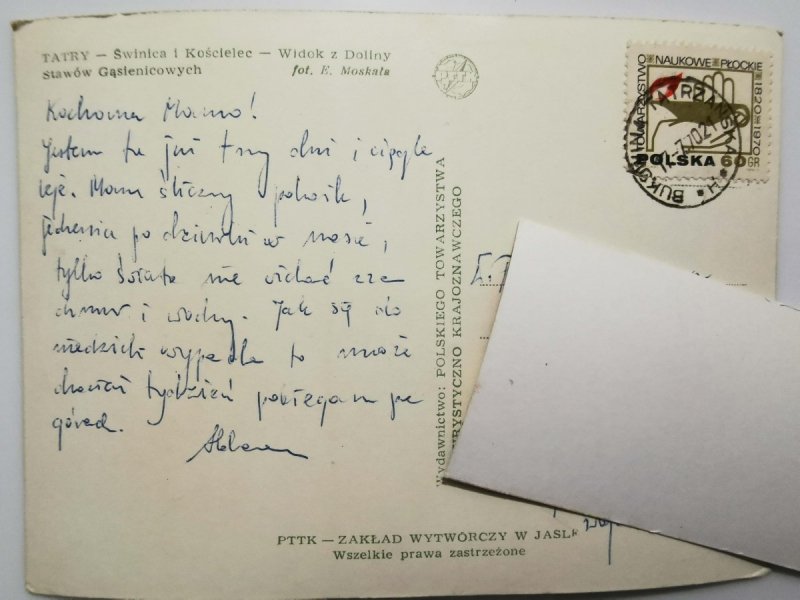 TATRY — Świnica i Kościelec — Widok z Doliny
Stawów Gąsienicowych fot. E. Moskała
PTTK
Kochana Mamo!
Jestem tu już trzy dni i ciągle
leje. Mam śliczny pokoik,
jedzenia po dziurki w nosie,
tylko świata nie widać zza
chmur i wody. Jak się do
niedzieli wypada to może
chociaż tydzień pobiegam po
górach.
Wydawnictwo: POLSKIEGO TOWARZYSTWA
TURYSTYCZNO KRAJOZNAWCZEGO
TOWARZYSTWO NAUKOWE PŁOCKIE 1820-1970
POLSKA 60 GR
BUKOWINA TATRZAŃSKA
PTTK — ZAKŁAD WYTWÓRCZY W JAŚLE
Wszelkie prawa zastrzeżone